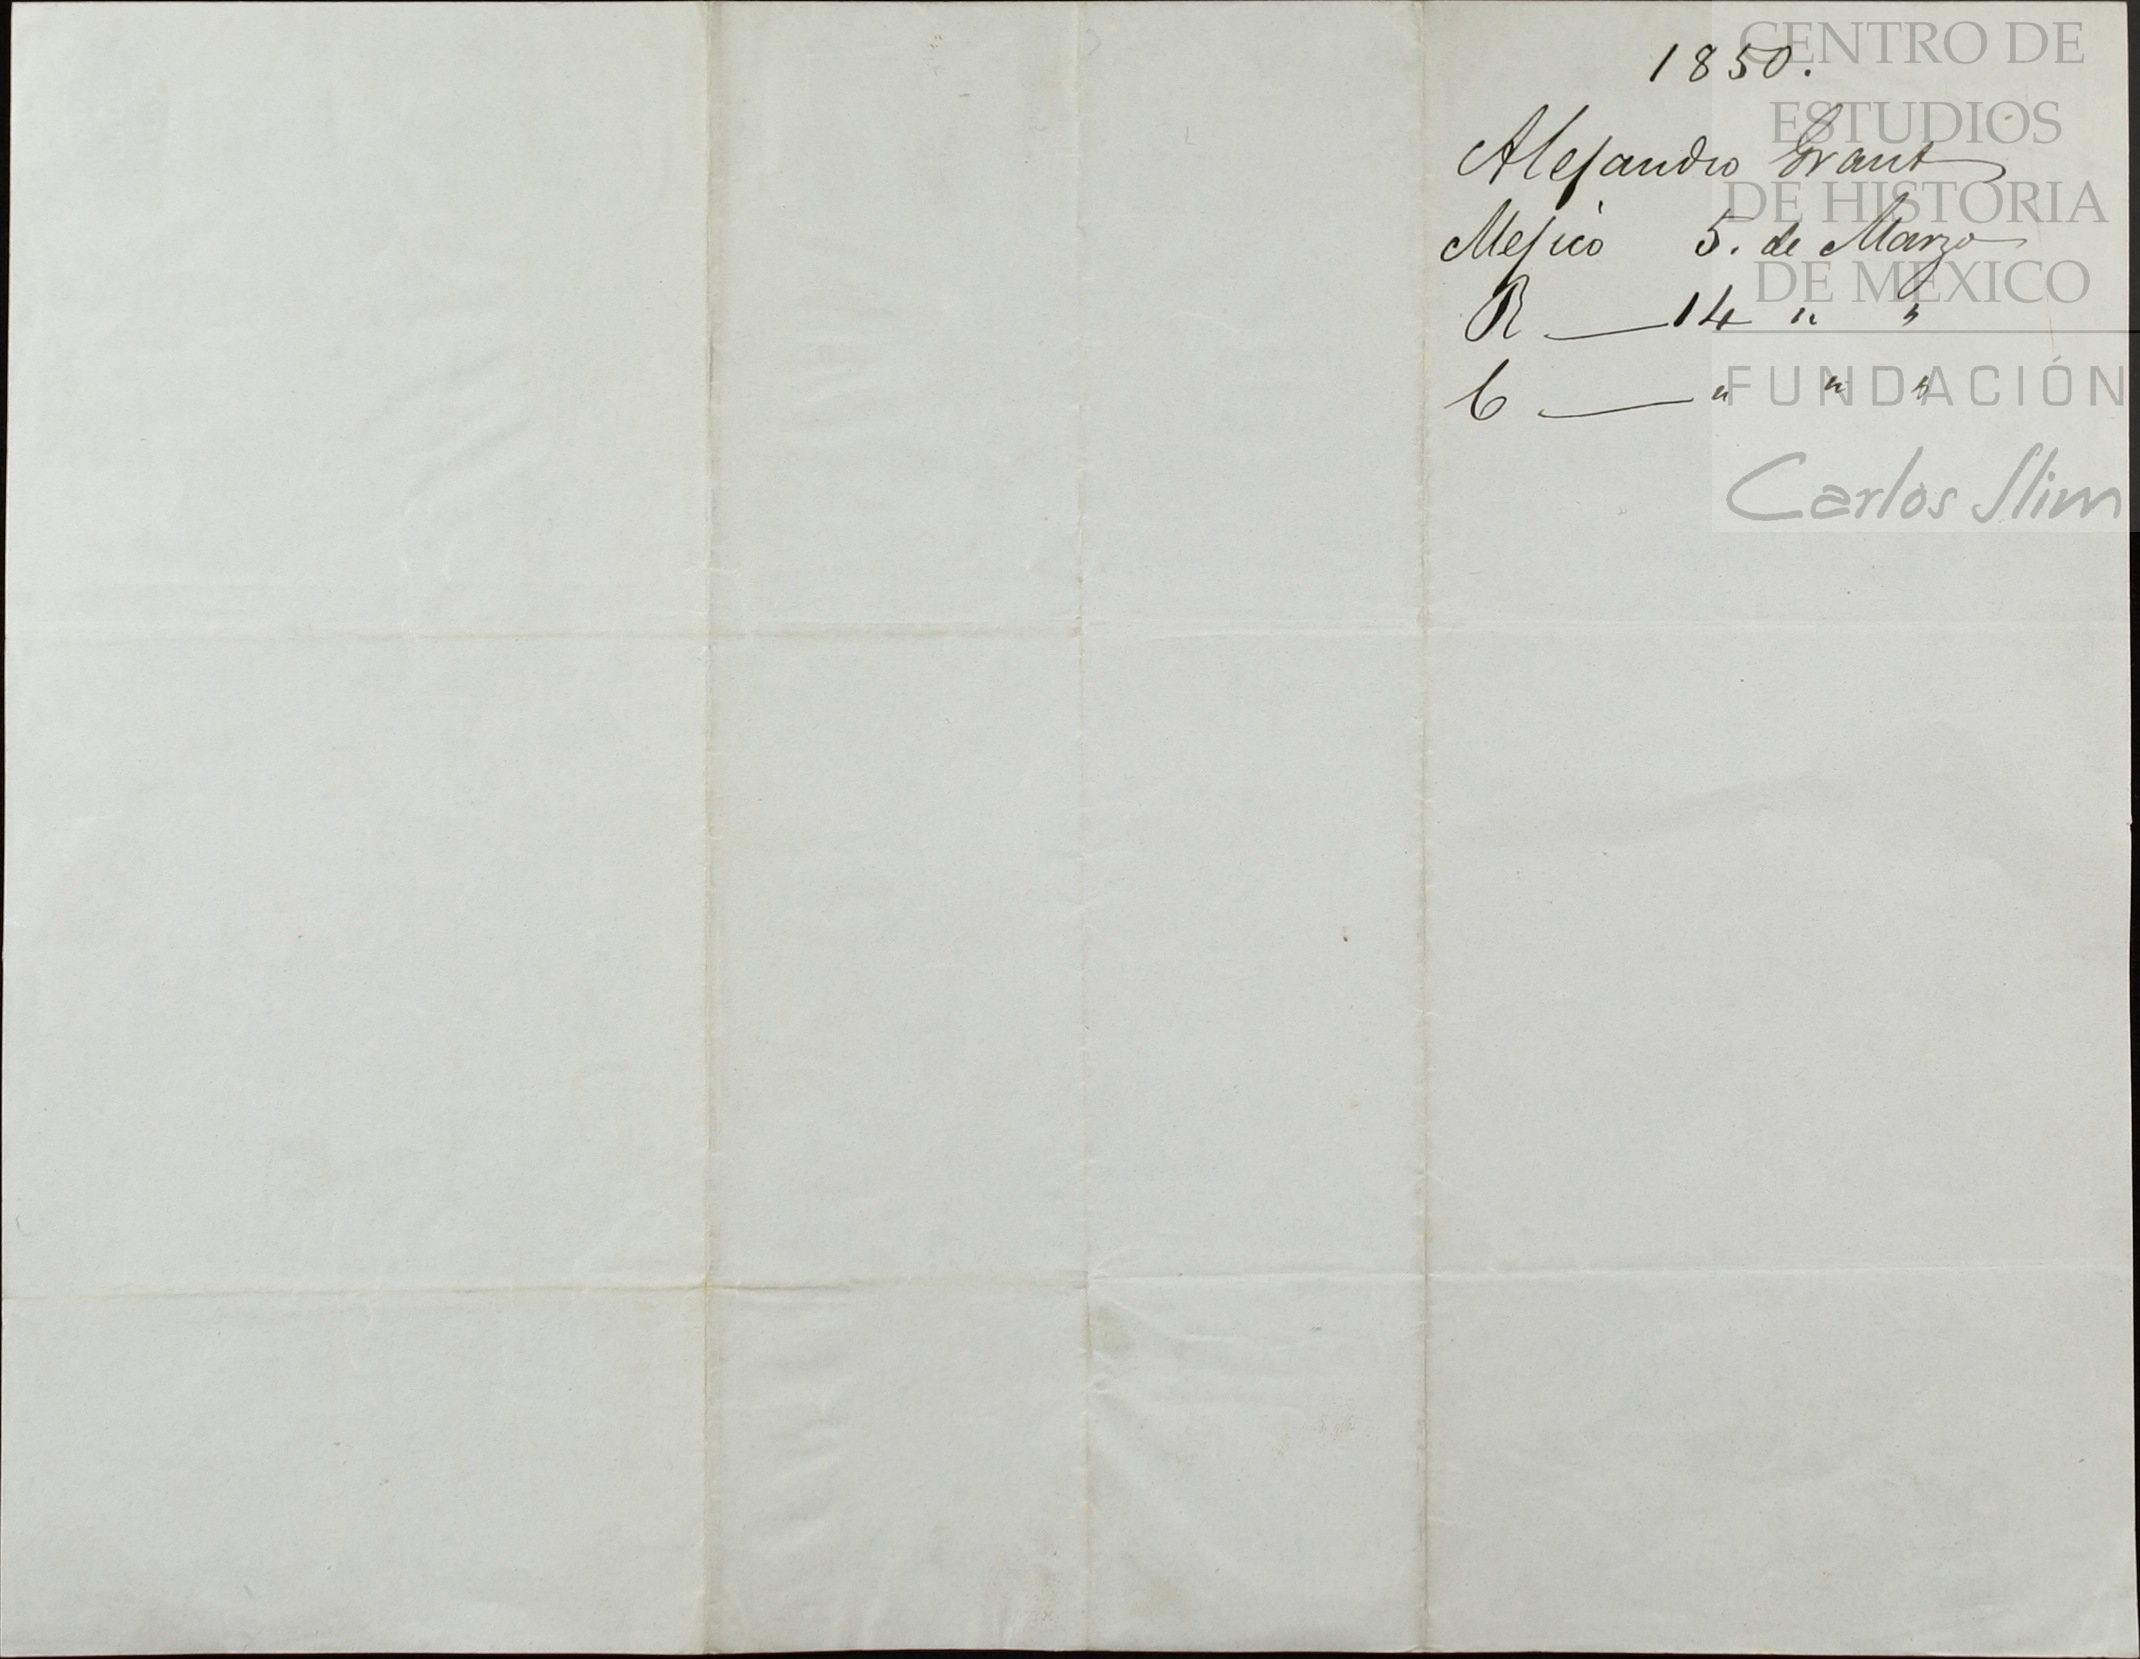 1850.
Alejandro Grant
Mejico 5. de Marzo
R — 14 " "
C — " " "
CENTRO DE
ESTUDIOS
DE HISTORIA
DE MEXICO
FUNDACIÓN
Carlos Slim